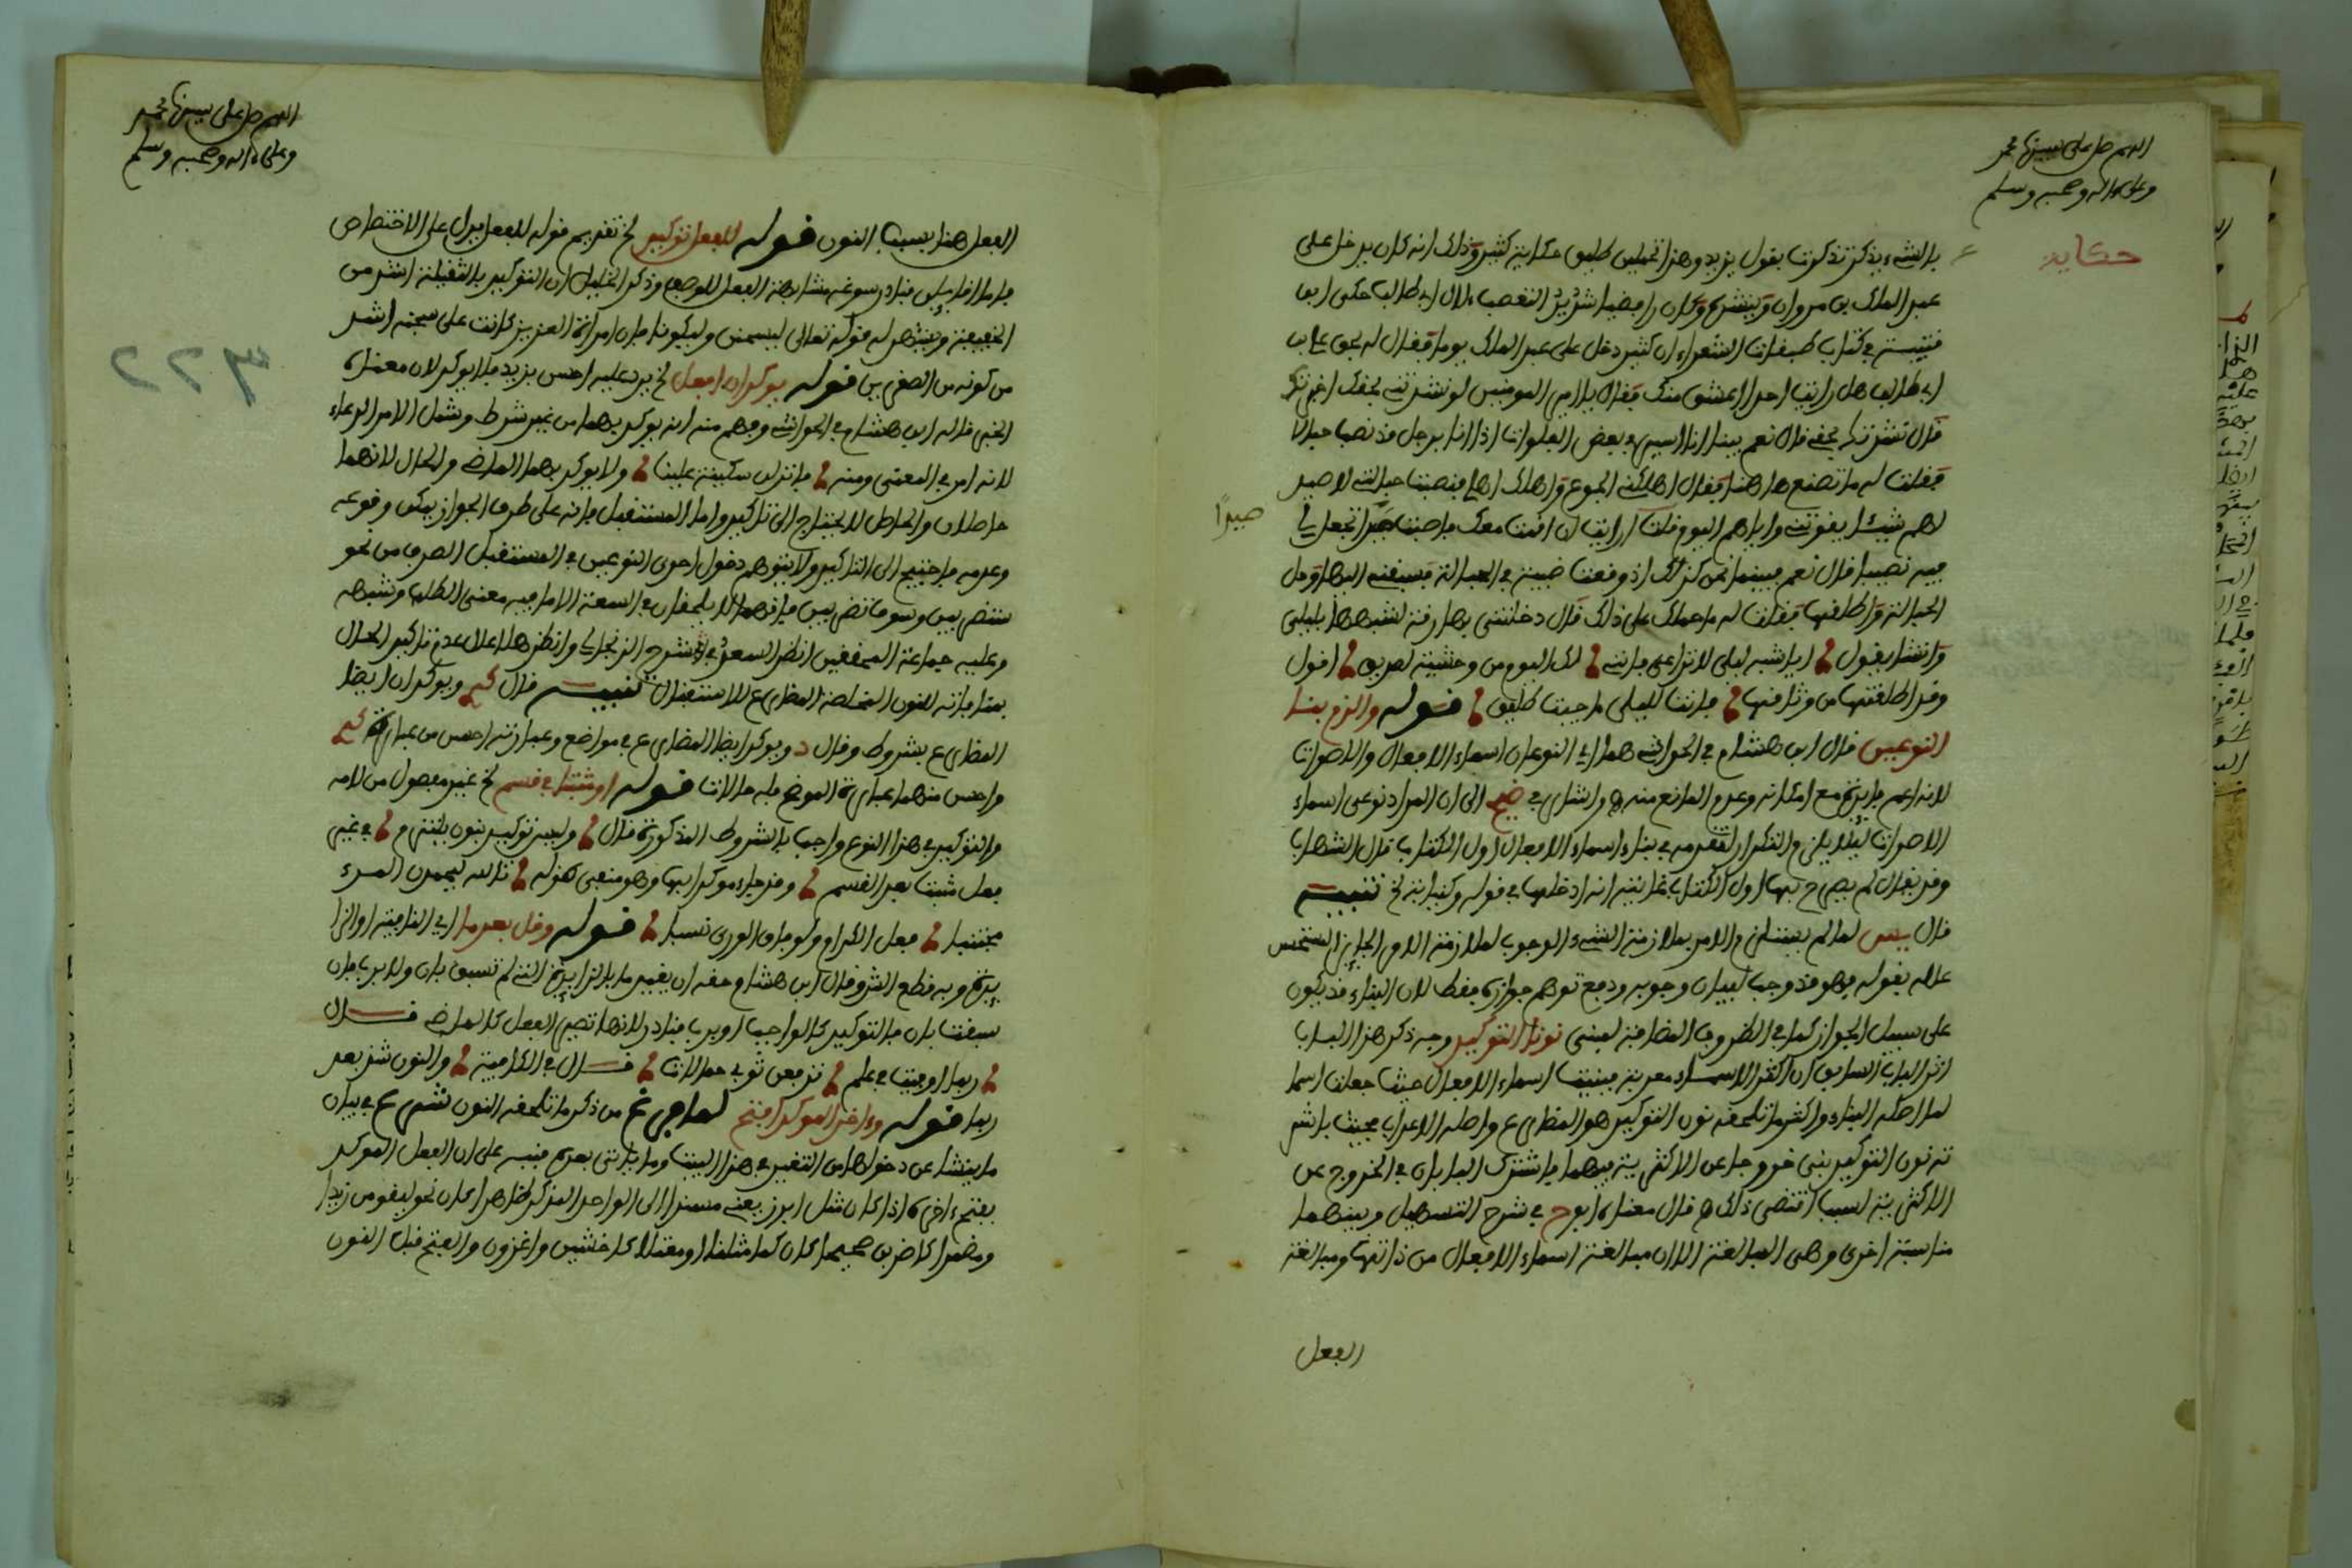 اللهم صل على سيدنا محمد
وعلى ءاله وصحبه وسلم
حكاية
بالشيء يذكر تذكرت بقول يزيد وهذا تحملين طليق حكاية كثير وذلك انه كان يدخل على
عبد الملك بن مروان وينشده وكان رافضيا شديد التعصب لآل ابي طالب حكى ابن
قتيبة في كتاب طبقات الشعراء ان كثير دخل على عبد الملك يوما فقال له بحق علي بن
ابي طالب هل رايت احدا اعشق منك فقال يا امير المومنين لو نشدتني بحقك اخبرتك
قال نشدتك بحقي قال نعم بينا انا اسير في بعض الفلوات اذا انا برجل قد نصب حبالا
فقلت له ما تصنع هاهنا فقال اهلكني الجوع واهلك اهلي فنصبت حبالتي لاصيد
لهم شيئا يقوتني واياهم اليوم قلت ارايت ان اقمت معك فاصبت صيدا تجعل لي
صيدًا
فيه نصيبا قال نعم فبينما نحن كذلك اذ وقعت ظبية في الحبالة فسبقني اليها وحل
الحبالة واطلقها فقلت له ما حملك على ذلك قال دخلتني بها رقة لشبهها بليلى
وانشا يقول ايا شبه ليلى لا تراعي فانني لك اليوم من وحشية لصديق اقول
وقد اطلقتها من وثاقها فانت لليلى ما حييت طليق قوله والزم بنا
النوعين قال ابن هشام في الحواشي هما اي النوعان اسماء الافعال والاصوات
لانه اعم فايدة مع امكانه وعدم المانع منه واشار في الى ان المراد نوعي اسماء
الاصوات ليلا يلزم التكرار لتقدمه في بناء اسماء الافعال اول الكتاب قال الشهاب
وقد يقال لم يصرح بها اول الكتاب غايته انه ادخلها في قوله وكنيابة الخ تنبيه
قال يس لما لم يستلزم الامر بملازمة الشيء الوجوب لملازمة الامر الجايز المستحسن
علله بقوله فهو قد وجب لبيان وجوبه ودفع توهم جوازه فقط لان البناء قد يكون
على سبيل الجواز كما في الظروف المضافة لمبني نونا التوكيد وجه ذكر هذا الباب
اثر الباب السابق ان اكثر الاسماء معربة فبنيت اسماء الافعال حيث جعلت اسما
لما اصله البناء واكثر ما تلحقه نون التوكيد هو المضارع واصله الاعراب فحيث باشر
ته نون التوكيد بني خروجا عن الاكثرية فيهما فاشترك البابان في الخروج عن
الاكثرية لسبب اقتضى ذلك قال معناه ابوح في شرح التسهيل وبينهما
مناسبة اخرى وهي المبالغة الا ان مبالغة اسماء الافعال من ذاتها ومبالغة
الفعل
اللهم صل على سيدنا محمد
وعلى ءاله وصحبه وسلم
الفعل هنا بسبب النون قوله للفعل توكيد الخ تقديم قوله للفعل يدل على الاختصاص
فاما اقايلن فنادر سوغه مشابهة الفعل للوصف وذكر الخليل ان التوكيد بالثقيلة اشد من
الخفيفة ويشهد له قوله تعالى ليسجنن وليكونا فان امراة العزيز كانت على سجنه اشد
من كونه من الصغرين قوله يوكدان افعل الخ يرد عليه احسن بزيد فلا يوكد لان معناه
الخبر قاله ابن هشام في الحواشي وفهم منه انه يوكد بهما من غير شرط وشمل الامر الدعاء
لانه امر في المعنى ومنه فانزلن سكينة علينا ولا يوكد بهما الماضي والحال لانهما
حاصلان والحاصل لا يحتاج الى تاكيد واما المستقبل فانه على طرف الجواز يمكن وقوعه
وعدمه فاحتيج الى التاكيد ولا يتوهم دخول احدى النوعين في المستقبل الصرف من نحو
ستضربين وسوف تضربين فانهما لا يلحقان في السعة الا ما فيه معنى الطلب وشبهه
وعليه جماعة المحققين انظر السعد في شرح الزنجاني وانظر هلا علل عدم تاكيد الحال
بمنافاته للنون المخلصة المضارع للاستقبال تنبيه قال ويوكدان ايضا
المضارع بشروط وقال د ويوكد ايضا المضارع في مواضع وعبارته احسن من عبارة
واحسن منهما عبارة الموضح فله حالات قوله او مثبتا في قسم الخ غير مفصول من لامه
والتوكيد في هذا النوع واجب بالشروط المذكورة قال وليس توكيد بنون يلتزم في غير
فعل مثبت بعد القسم وقد جاء موكدا بها وهو منفي كقوله تالله ليحمدن المرء
مجتنبا فعل الكرام ولو فاق الورى نسبا قوله وقل بعد ما اي النافية او الزا
يدة وبه قطع الش وقال ابن هشام وحقه ان يقيد ما بالزايدة التي لم تسبق بان ولا برب فان
سبقت بان فالتوكيد كالواجب او برب فنادر لانها تصير الفعل كالماضي قال
ربما اوفيت في علم ترفعن ثوبي شمالات قال في الكافية والنون شذ بعد
ربما قوله وءاخر الموكد افتح لما فرغ من ذكر ما تلحقه النون شرع في بيان
ما ينشا عن دخولها من التغيير في هذا البيت وما ياتي بعده فنبه على ان الفعل الموكد
يفتح ءاخره اذا كان مثل ابرز يعني مسندا الى الواحد المذكر ظاهرا كان نحو ليقومن زيد ا
ومضمرا كاضربن صحيحا كان كما مثلنا او معتلا كاخشين واغزون والفتح قبل النون